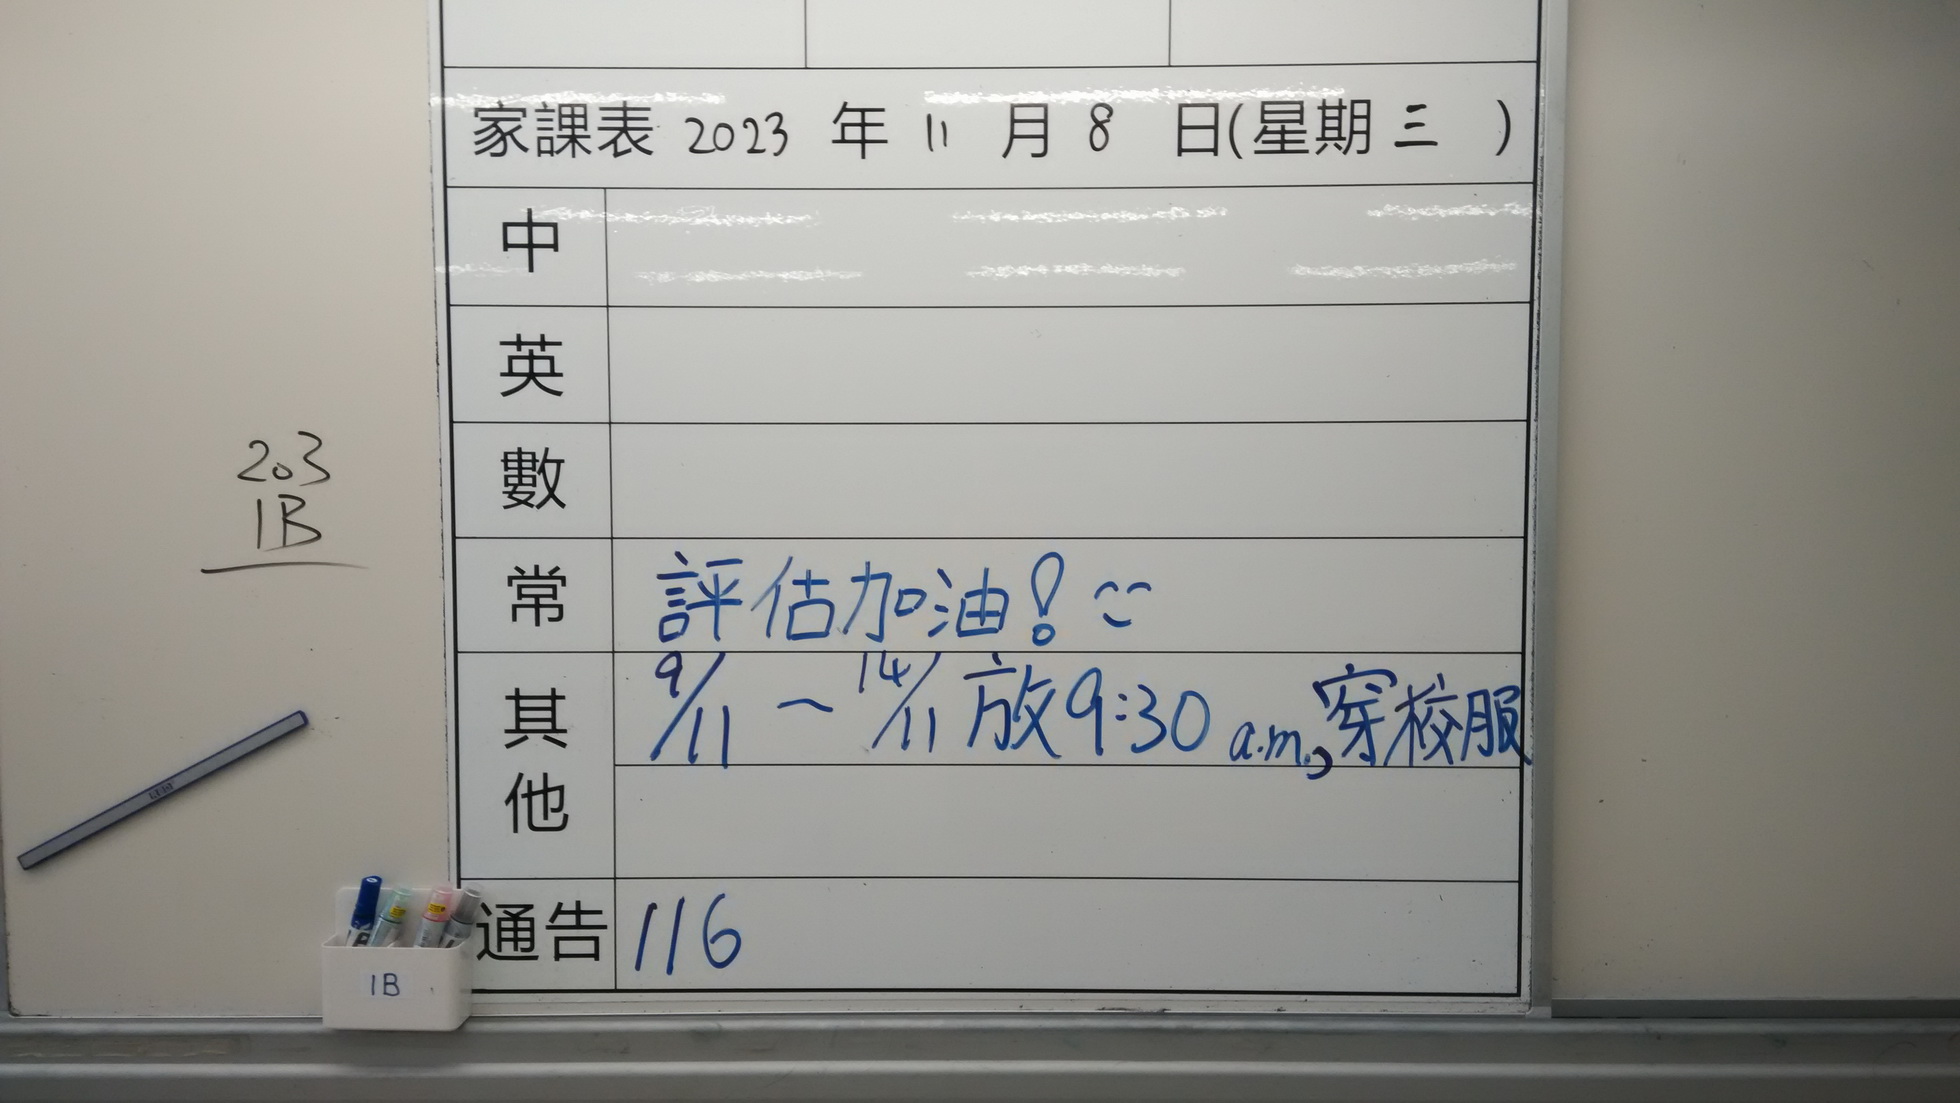 家課表 2023 年 11 月 8 日(星期三 )
中
英
數
常 評估加油!
其他 9/11 ~ 14/11 放9:30 a.m.,穿校服
通告 116
203
1B
1B